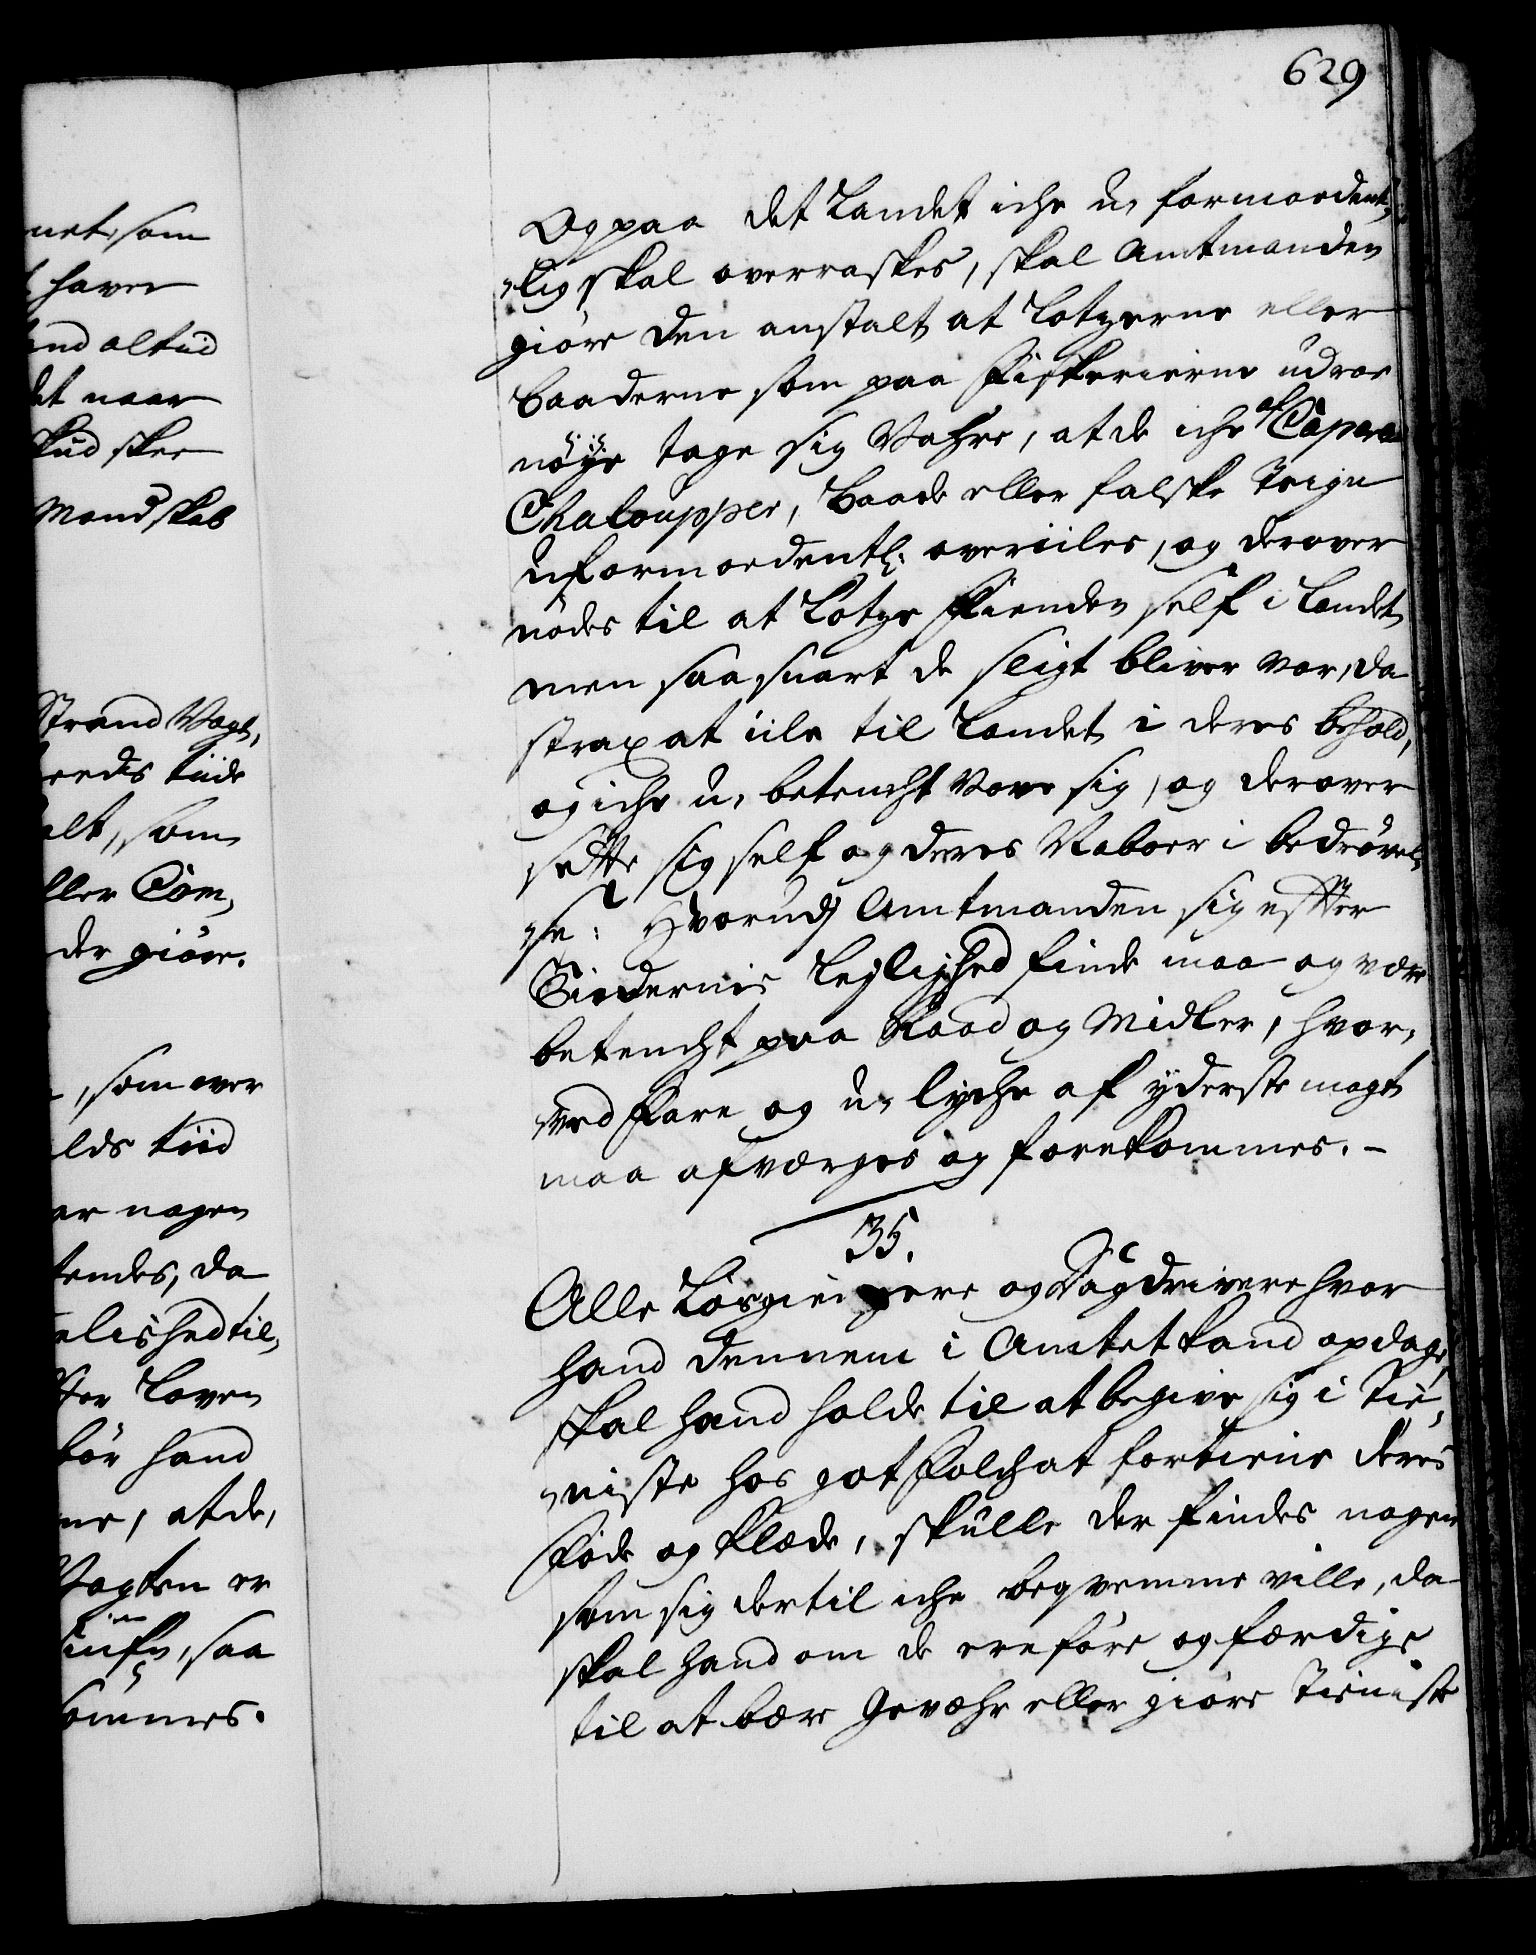 629
Og paa det Landet iche u, formoedent,
„lig skal overraskes, skal Amtmanden
giöre den anstalt at Lotzerne eller
baaderne som paa Fiskerierne udroe
nöye tage sig Vahre, at de iche af Caper
Chaloupper, Baade eller falske Tegn
uformoedentl: overiiles, og derover
nödes til at Lotze Fienden self i Landet
men saa snart de sligt bliver var, da
strax at iile til Landet i deres behold,
og iche u, betencht vove sig, og derover
sette sig self og deres Naboer i bedrövel,
„se: Hvorudj Amtmanden sig effter
Tiidernis Lejlighed finde maa og være
betencht paa Raad og Midler, hvor,
„ved Fare og u, lyche af yderste magt
maa afværges og forekommes.
35.
Alle Lösgiengere og Dagdrivere hvor
hand dennem i Amtet kand opdage,
skal hand holde til at begive sig i Tie,
„niste hos got Folch at fortiene deres
Föde og Klæde, skulle der findes nogen
som sig dertil iche beqvemme ville, da
skal hand om de ere före og færdige
til at bære Gevæhr eller giöre Tieniste
net, som
haver
and altiid
det naar
skud skeer
Mandskab
Strand Vagt,
tiide
alt, som
eller Com,
der giöre.
, som over
tiid
er nogen
tendes, da
til,
Loven
bör hand
ne, at de,
Vagten er
, saa
kommes.